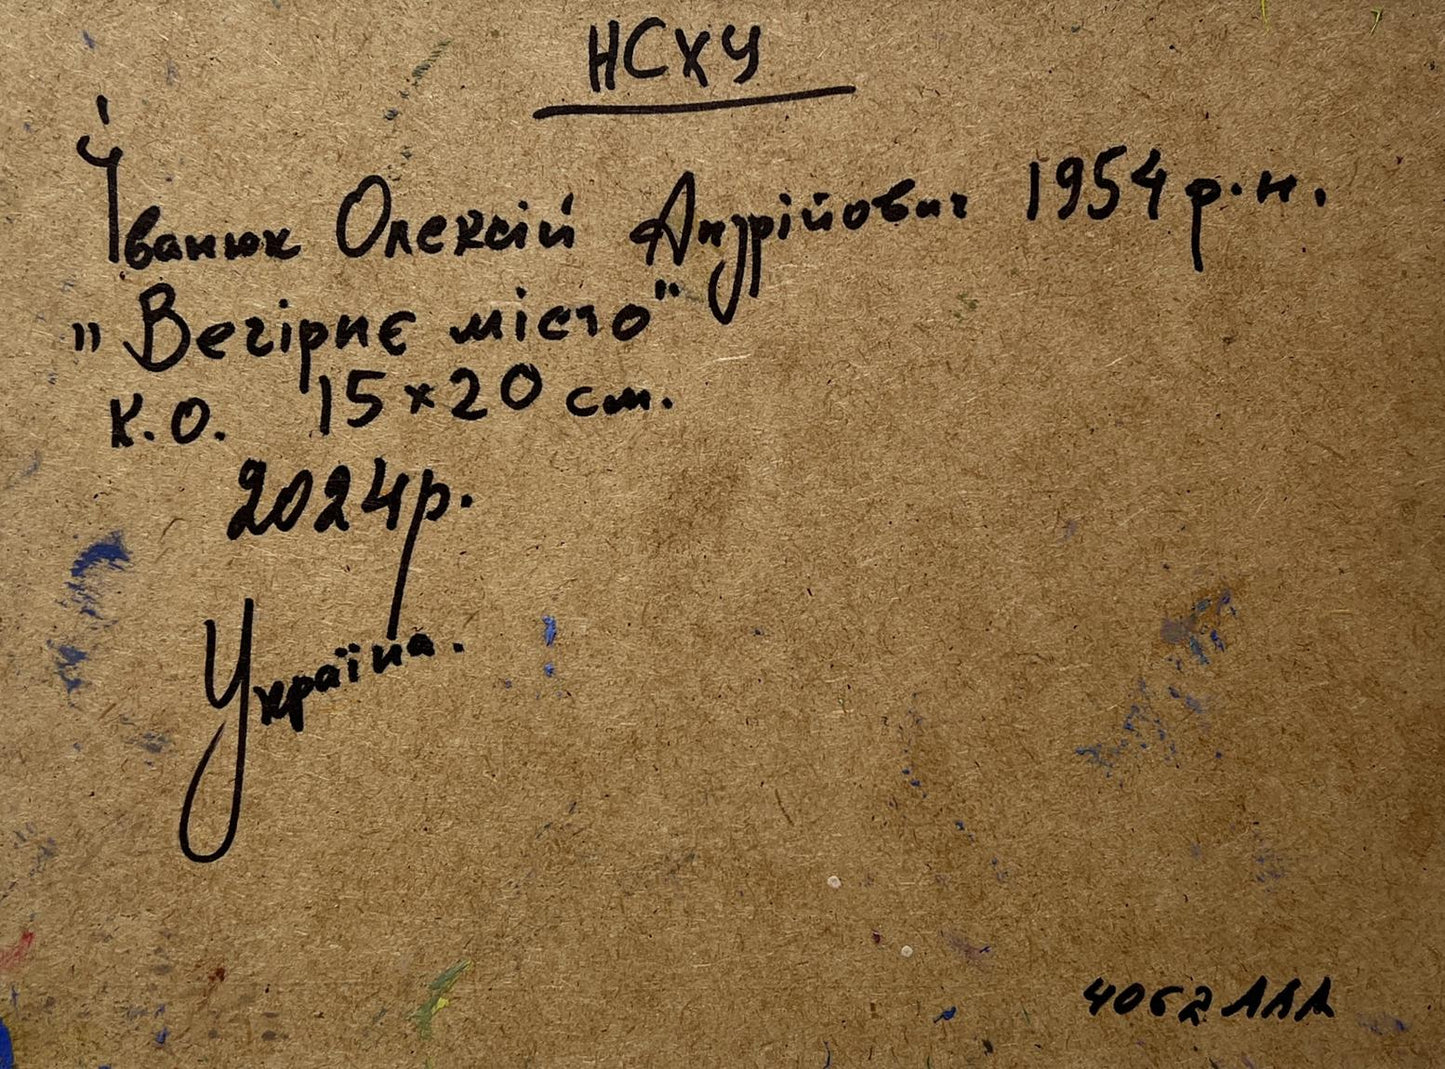 НСХУ
Іванюк Олексій Андрійович 1954 р.н.
„Вечірнє місто"
К.О. 15×20 см.
2024р.
Україна.
4062 ААА